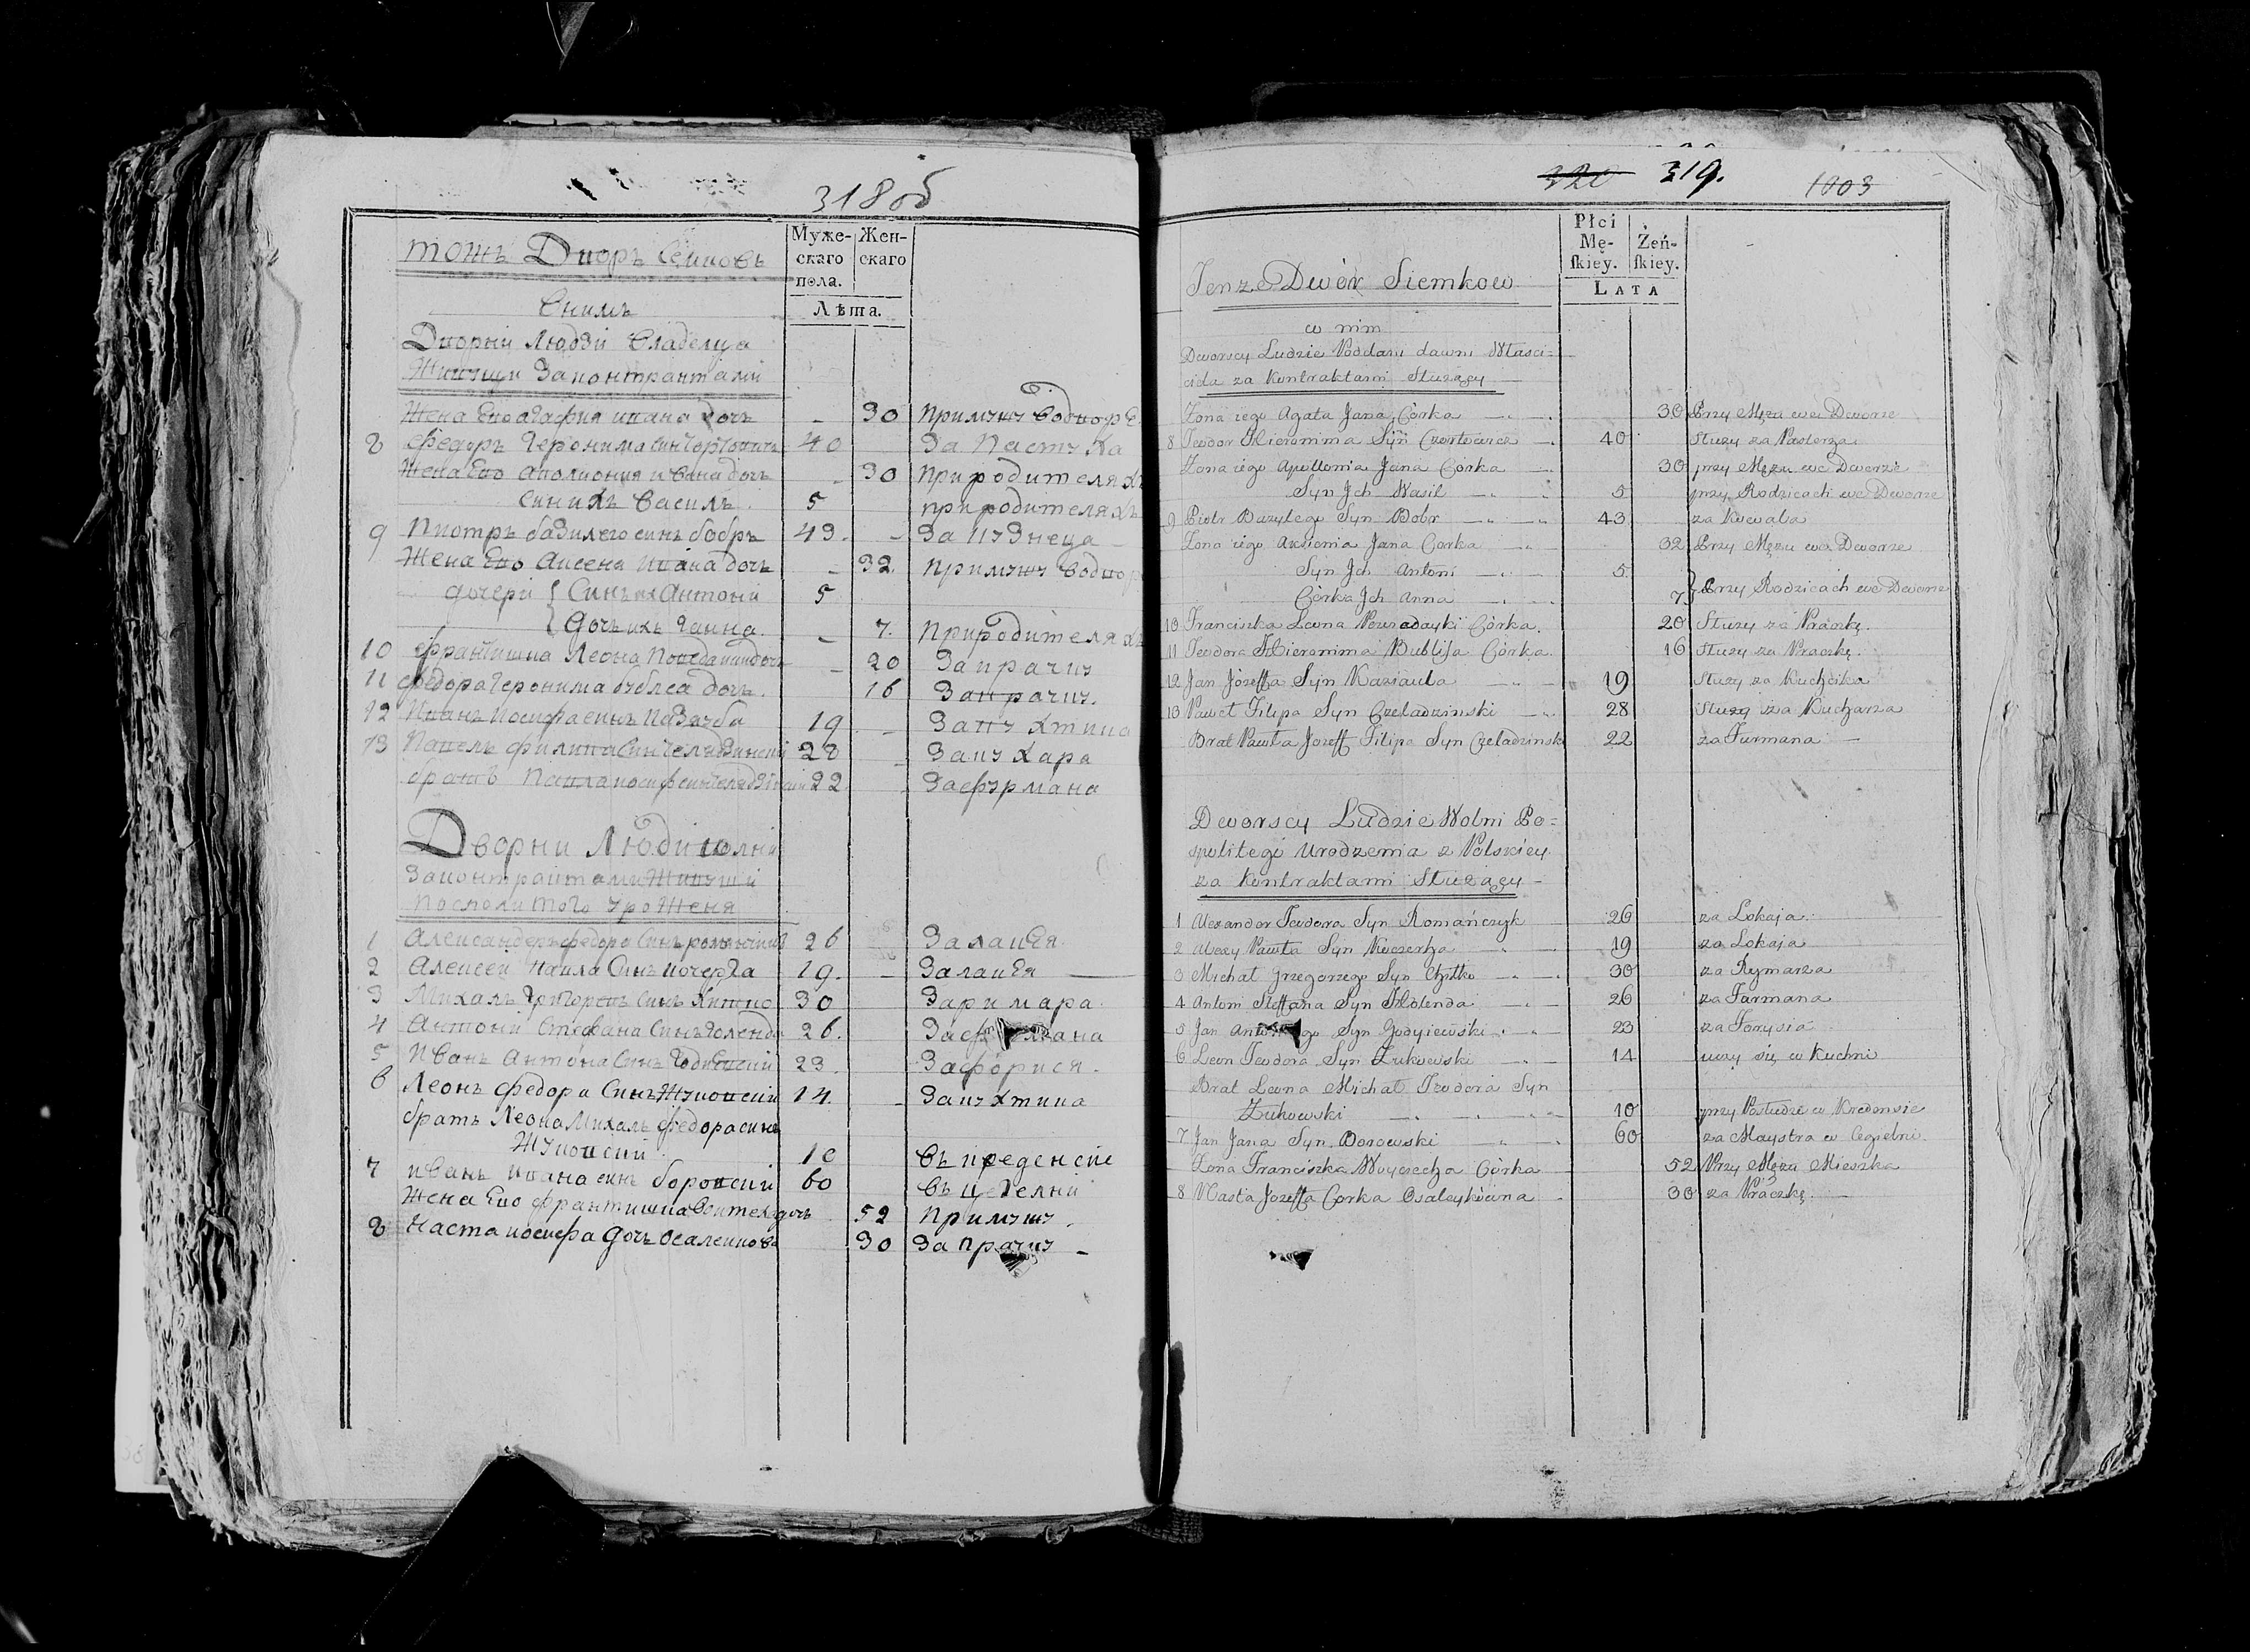 318 об
тожъ Дворъ Семковъ
Муже-скаго пола.
Жен-скаго
Лѣта.
Внимъ
Дворни Людзи Владелца
Живущи Законтрактами
Жена Его агафия ивана дочь - 30 Примужу Водворе
8 Федоръ Геронима Синъ Чортовичъ 40 За Пастуха
Жена Его аполиония ивана дочь - 30 Природителяхъ
Синихъ Василь 5 природителяхъ
9 Пиотръ базилего синъ бобръ 43. - За Кузнеца
Жена Его Аксеня Ивана дочь - 32. Примужу Водвор
дочери { Синъ их Антони 5
{ Дочь ихъ Ганна. - 7. Природителяхъ
10 франтишка Леона дочь - 20 За прачку
11 Федора Геронима бублеа дочь. 16 За прачку.
12 Иванъ Иосифа синъ Казауба 19 - За кухтика
13 Павелъ филипа Синъ Челядзинский 28 - За кухара
братъ Павла иосиф синъ Челядзинский 22 За фурмана
Дворни Люди волни
Законтрактами Живущи
посполитого уроженя
1 Александеръ федора Синъ романчикъ 26 За лакея.
2 Алексей Павла Синъ кочерга 19. - За лакея
3 Михалъ Григорего Синъ Хитко 30 За римара.
4 Антони Стефана Синъ Голенда 26. За фурмана
5 Иванъ Антона Синъ Годиевский 23. За форися.
6 Леонъ федора Синъ Жуковский 14. - За кухтика
братъ Леона Михалъ федора синъ
Жуковский 10 въ креденсе
7 иванъ ивана синъ боровский 60 въ цегелни
Жена Его франтишка Войтеха дочь 52 Примужу.
8 Наста иосифа дочь Осалейкова 30 За прачку -
320 319. 1003
Płci
Mę-skiey.
Żeń-skiey.
LATA
Tenze Dwór Siemkow
w nim
Dworscy Ludzie Poddani dawni Własci=
ciela za Kontraktami Służący
Zona iego Agata Jana Córka 30 Przy Mężu we Dworze
8 Teodor Hieronima Syn Czortowicz 40 Służy za Pasterza
Zona iego Apollonia Jana Córka 30 przy Mężu we Dworze
Syn Jch Wasil 5 przy Rodzicach we Dworze
9 Piotr Bazylego Syn Bobr 43 za Kowala
Zona iego Axsienia Jana Corka 32 Przy Mężu we Dworze
Syn Jch Antoni 5
Córka Jch Anna 7 } Przy Rodzicach we Dworze
10 Franciszka Leona Córka. 20 Służy za Praczkę.
11 Teodora Hieronima Bublisa Córka. 16 Służy za Praczkę.
12 Jan Józeffa Syn Kaziauba 19 Służy za Kuchcika
13 Paweł Filipa Syn Czeladzinski 28 Służy za Kucharza
Brat Pawła Jozeff Filipa Syn Czeladzinski 22 za Furmana
Dworscy Ludzie Wolni Po=
spolitego Urodzenia z Polskiey
za Kontraktami Służący
1 Alexander Teodora Syn Romańczyk 26 za Lokaja.
2 Alexy Pawła Syn Koczerha 19 za Lokaja
3 Michał Grzegorzego Syn Chytko 30 za Rymarza
4 Antoni Steffana Syn Holenda 26 za Furmana
5 Jan Antoniego Syn Godyiewski 23 za Forysia
6 Leon Teodora Syn Zukowski 14 uczy się w Kuchni
Brat Leona Michał Teodora Syn
Zukowski 10 przy Posłudze w Kredensie
7 Jan Jana Syn Borowski 60 za Maystra w Cegielni.
Zona Franciszka Woyciecha Córka 52 Przy Mężu Mieszka
8 Nasta Jozeffa Corka Osaleykowna 30 za Praczkę.